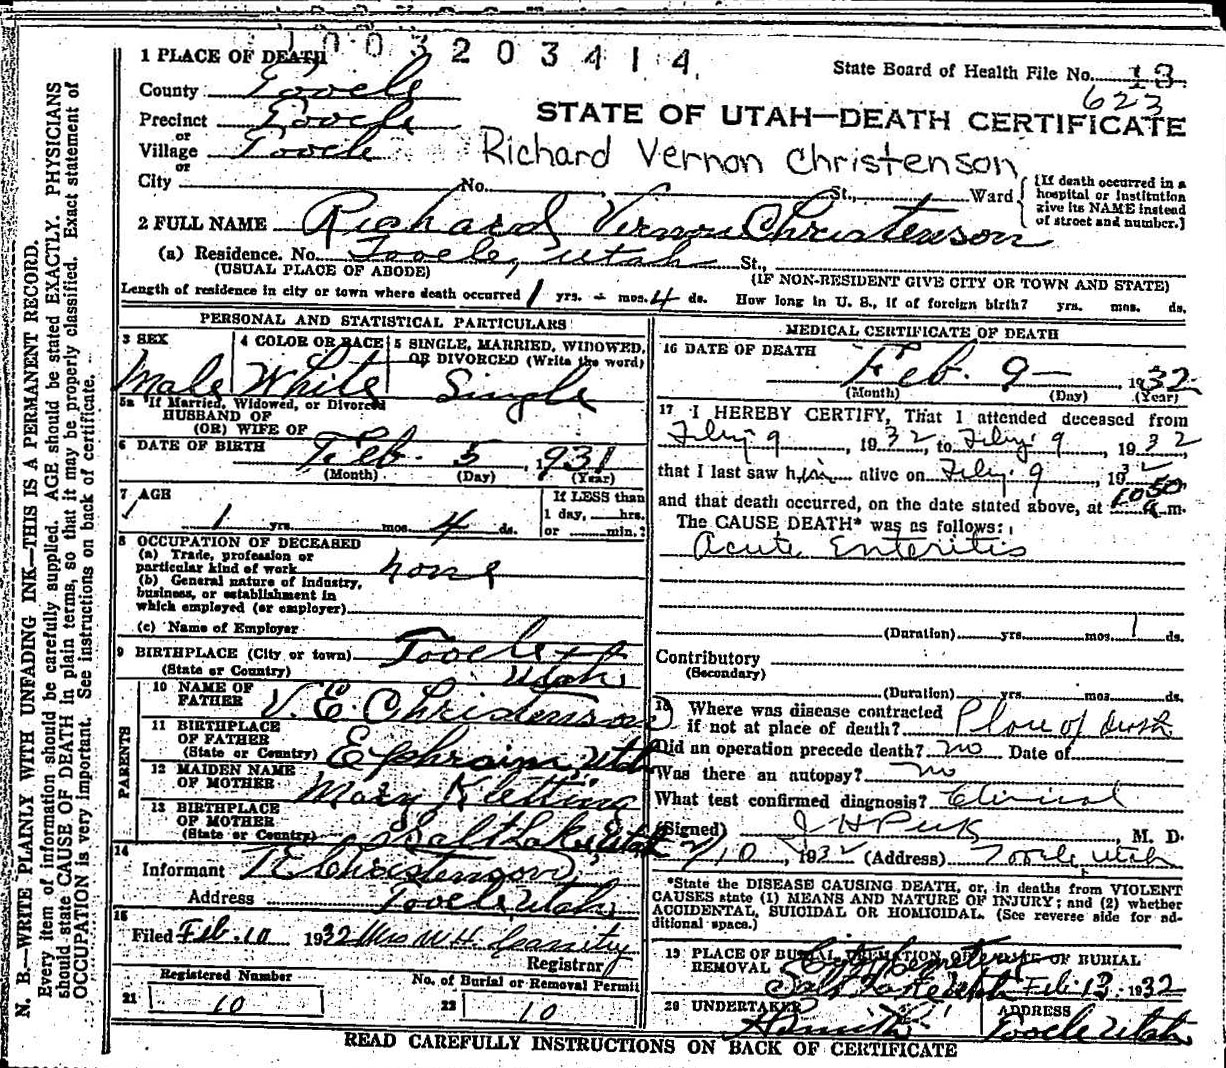 1003203414
1 PLACE OF DEATH
State Board of Health File No. 13
623
County Tooele
Precinct Tooele
or
Village Tooele
or
City No. St., Ward
STATE OF UTAH—DEATH CERTIFICATE
Richard Vernon Christenson
[If death occurred in a
hospital or institution
give its NAME instead
of street and number.]
2 FULL NAME Richard Vernon Christenson
(a) Residence. No. Tooele, Utah St.,
(USUAL PLACE OF ABODE) (IF NON-RESIDENT GIVE CITY OR TOWN AND STATE)
Length of residence in city or town where death occurred 1 yrs. - mos. 4 ds. How long in U. S., if of foreign birth? yrs. mos. ds.
PERSONAL AND STATISTICAL PARTICULARS
3 SEX
Male
4 COLOR OR RACE
White
5 SINGLE, MARRIED, WIDOWED,
OR DIVORCED (Write the word)
Single
5a If Married, Widowed, or Divorced
HUSBAND OF
(OR) WIFE OF
6 DATE OF BIRTH Feb. 5, 1931
(Month) (Day) (Year)
7 AGE
1 yrs. mos. 4 ds.
If LESS than
1 day, hrs.
or min.?
8 OCCUPATION OF DECEASED
(a) Trade, profession or
particular kind of work none
(b) General nature of industry,
business, or establishment in
which employed (or employer)
(c) Name of Employer
9 BIRTHPLACE (City or town) Tooele
(State or Country) Utah
PARENTS
10 NAME OF
FATHER V. E. Christenson
11 BIRTHPLACE
OF FATHER
(State or Country) Ephraim, Utah
12 MAIDEN NAME
OF MOTHER Mary Kletting
13 BIRTHPLACE
OF MOTHER
(State or Country) Salt Lake, Utah
14
Informant V E Christenson
Address Tooele, Utah
15
Filed Feb. 10 1932 Mrs W H Cassity
Registrar
Registered Number
21 10
No. of Burial or Removal Permit
22 10
MEDICAL CERTIFICATE OF DEATH
16 DATE OF DEATH
Feb. 9 — , 1932
(Month) (Day) (Year)
17 I HEREBY CERTIFY, That I attended deceased from
Feby 9, 1932, to Feby. 9, 1932
that I last saw him alive on Feby. 9, 1932
and that death occurred, on the date stated above, at 10 50 a m.
The CAUSE DEATH* was as follows:
Acute Enteritis
(Duration) yrs. mos. 1 ds.
Contributory
(Secondary)
(Duration) yrs. mos. ds.
18 Where was disease contracted
if not at place of death? Place of death
Did an operation precede death? no Date of
Was there an autopsy? no
What test confirmed diagnosis? Clinical
(Signed) J H Peck, M. D.
2/10, 1932 (Address) Tooele Utah
*State the DISEASE CAUSING DEATH, or, in deaths from VIOLENT
CAUSES state (1) MEANS AND NATURE OF INJURY; and (2) whether
ACCIDENTAL, SUICIDAL OR HOMICIDAL. (See reverse side for ad-
ditional space.)
19 PLACE OF BURIAL, CREMATION OR DATE OF BURIAL
REMOVAL City Cemetery
Salt Lake Utah Feb. 13. 1932
20 UNDERTAKER ADDRESS
Tooele Utah
READ CAREFULLY INSTRUCTIONS ON BACK OF CERTIFICATE
N. B.—WRITE PLAINLY WITH UNFADING INK—THIS IS A PERMANENT RECORD.
Every item of information should be carefully supplied. AGE should be stated EXACTLY. PHYSICIANS
should state CAUSE OF DEATH in plain terms, so that it may be properly classified. Exact statement of
OCCUPATION is very important. See instructions on back of certificate.